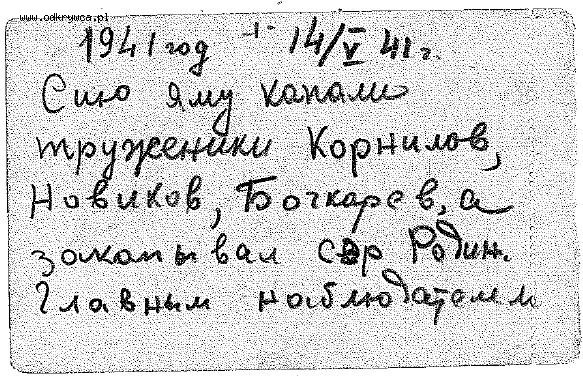 www.odkrywca.pl
1941 год -1- 14/V 41 г.
Сию яму капали
труженики Корнилов,
Новиков, Бочкарев, а
закапывал сэр Родин.
Главным наблюдателем